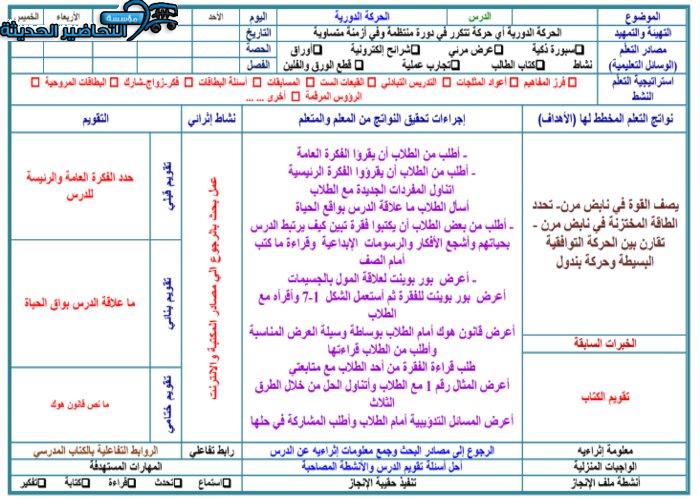 الموضوع الدرس الحركة الدورية اليوم الأحد الأربعاء الخميس
مؤسسة التحاضير الحديثة
التهيئة والتمهيد الحركة الدورية أي حركة تتكرر في دورة منتظمة وفي أزمنة متساوية التاريخ
مصادر التعلم سبورة ذكية عرض مرئي شرائح إلكترونية أوراق الحصة
(الوسائل التعليمية) نشاط كتاب الطالب تجارب عملية قطع الورق والفلين الفصل
استراتيجية التعلم النشط فرز المفاهيم أعواد المثلجات التدريس التبادلي القبعات الست المسابقات أسئلة البطاقات فكر-زواج-شارك البطاقات المروحية
الرؤوس المرقمة أخرى ... ...
نواتج التعلم المخطط لها (الأهداف) إجراءات تحقيق النواتج من المعلم والمتعلم نشاط إثرائي التقويم
يصف القوة في نابض مرن- تحدد
الطاقة المختزنة في نابض مرن -
تقارن بين الحركة التوافقية
البسيطة وحركة بندول
الخبرات السابقة
تقويم الكتاب
- أطلب من الطلاب أن يقرؤا الفكرة العامة
- أطلب من الطلاب أن يقرؤوا الفكرة الرئيسية
اتناول المفردات الجديدة مع الطلاب
أسأل الطلاب ما علاقة الدرس بواقع الحياة
- أطلب من بعض الطلاب أن يكتبوا فقرة تبين كيف يرتبط الدرس
بحياتهم وأشجع الأفكار والرسومات الإبداعية وقراءة ما كتب
أمام الصف
- أعرض بور بوينت لعلاقة المول بالجسيمات
أعرض بور بوينت للفقرة ثم أستعمل الشكل 1-7 وأقرأه مع
الطلاب
أعرض قانون هوك أمام الطلاب بوساطة وسيلة العرض المناسبة
وأطلب من الطلاب قراءتها
طلب قراءة الفقرة من أحد الطلاب مع متابعتي
أعرض المثال رقم 1 مع الطلاب وأتناول الحل من خلال الطرق
الثلاث
أعرض المسائل التدوييبية أمام الطلاب وأطلب المشاركة في حلها
عمل بحث بالرجوع الي مصادر المكتبة والانترنت
تقويم قبلي
حدد الفكرة العامة والرئيسة
للدرس
تقويم بنائي
ما علاقة الدرس بواق الحياة
تقويم ختامي
ما نص قانون هوك
معلومة إثراءيه الرجوع إلى مصادر البحث وجمع معلومات إثراءيه عن الدرس رابط تفاعلي الروابط التفاعلية بالكتاب المدرسي
الواجبات المنزلية أحل أسئلة تقويم الدرس والأنشطة المصاحبة المهارات المستهدفة
أنشطة ملف الإنجاز تنفيذ حقيبة الإنجاز استماع تحدث قراءة كتابة تفكير